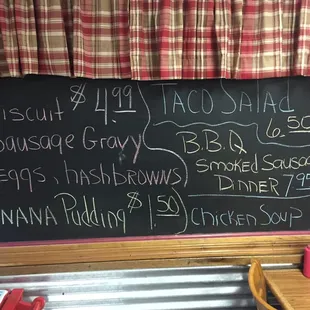 iscuit $4.99
ausage Gravy
eggs, hashbrowns
NANA Pudding $1.50
Taco Salad
6.50
B.B.Q
Smoked Sausag
Dinner 7.95
Chicken Soup